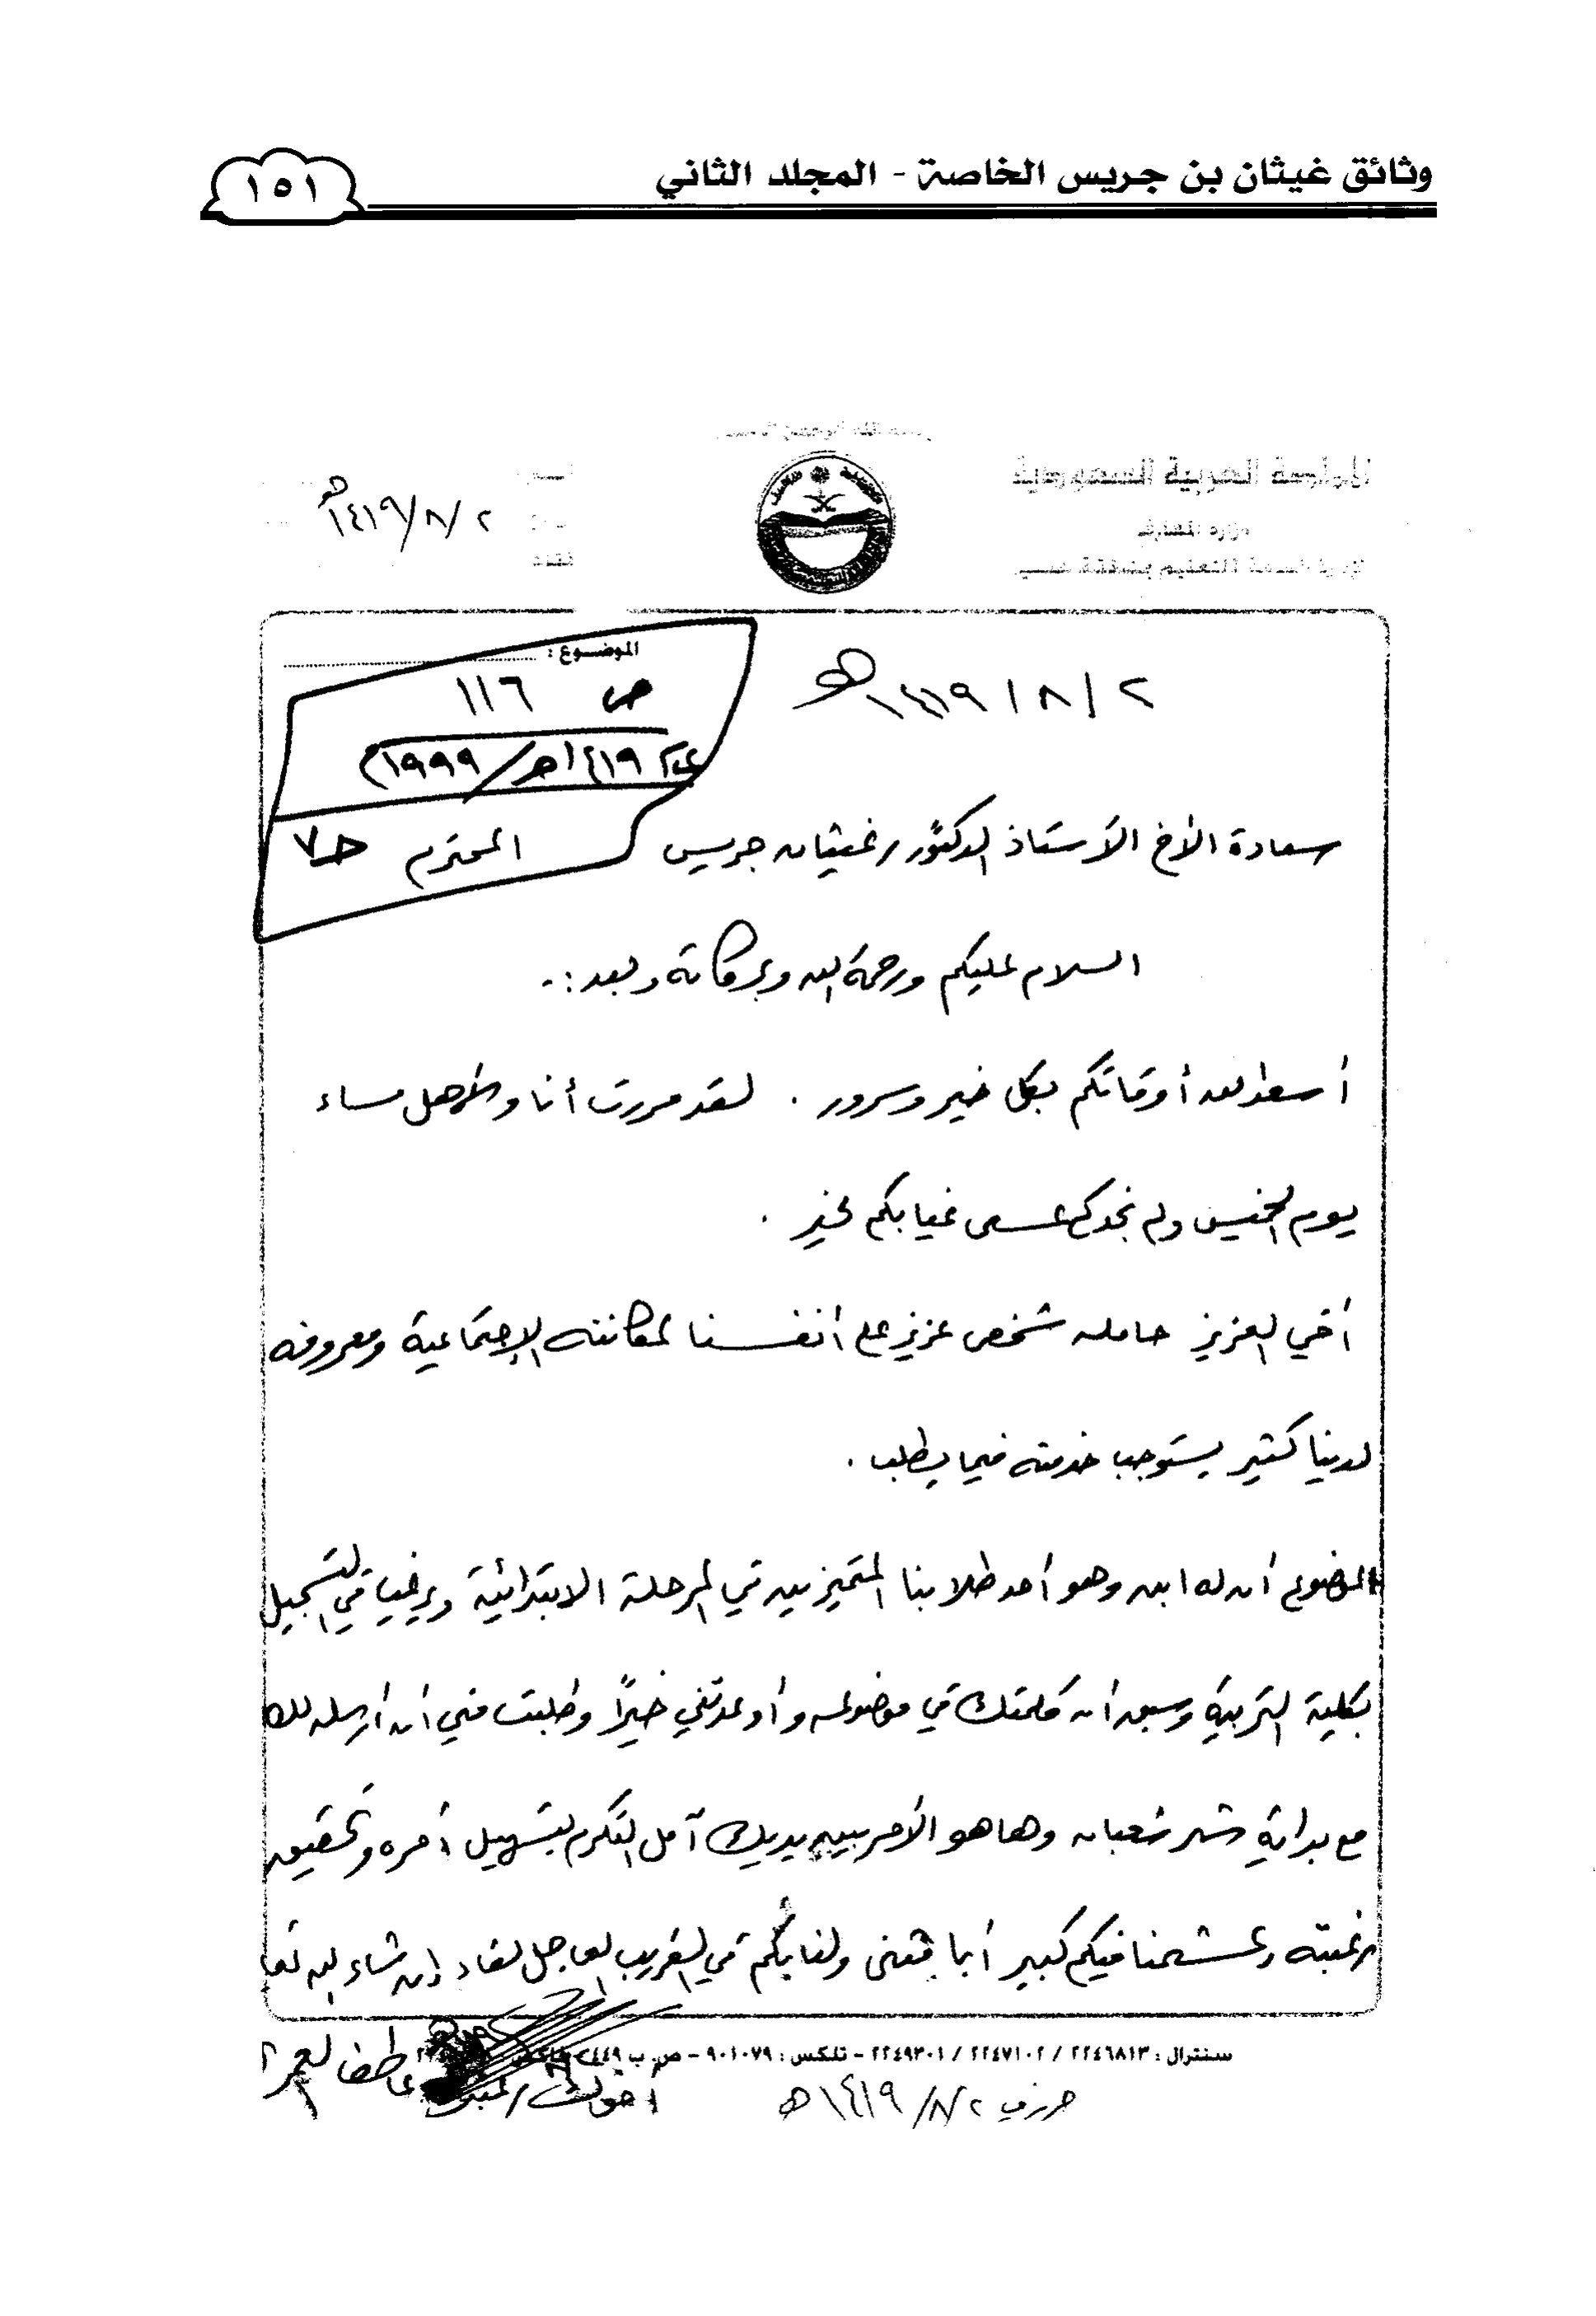 وثائق غيثان بن جريس الخاصة - المجلد الثاني
١٥١
المملكة العربية السعودية
وزارة المعارف
التعليم بمنطقة عسير
٢/٨/١٤١٩هـ
الموضوع:
ص ١١٦
١٤١٩هـ/١٩٩٩م
حـ٧
٢/٨/١٤١٩هـ
سعادة الأخ الأستاذ الدكتور/غيثان جريس المحترم
السلام عليكم ورحمة الله وبركاته وبعد:-
أسعد الله أوقاتكم بكل خير وسرور. لقد مررت أنا والأهل مساء
يوم الخميس ولم نجدكم عسى غيابكم لخير.
أخي العزيز حامله شخص عزيز على انفسنا لمكانته الإجتماعية ومعروفه
لدينا كثير يستوجب خدمته فيما يطلب.
الموضوع أن له ابن وهو أحد طلابنا المتميزين في المرحلة الابتدائية ويرغب في التسجيل
بكلية التربية وسبق أن كلمتك في موضوعه وأوعدتني خيراً وطلبت مني ان أرسله لك
مع بداية شهر شعبان وها هو الأمر بين يديك آمل التكرم بتسهيل أمره وتحقيق
رغبته وعشمنا فيكم كبير أبا مثنى ولنا بكم في القريب العاجل لقاء إن شاء الله تعا
سنترال: ٢٢٤٦٨١٣ / ٢٢٤٧١٠٢ / ٢٢٤٩٣٠١ - تلكس: ٩٠١٠٧٩ - ص.ب ٤٤٩
أخوك/ عاطف العمر
حرر في ٢/٨/١٤١٩هـ